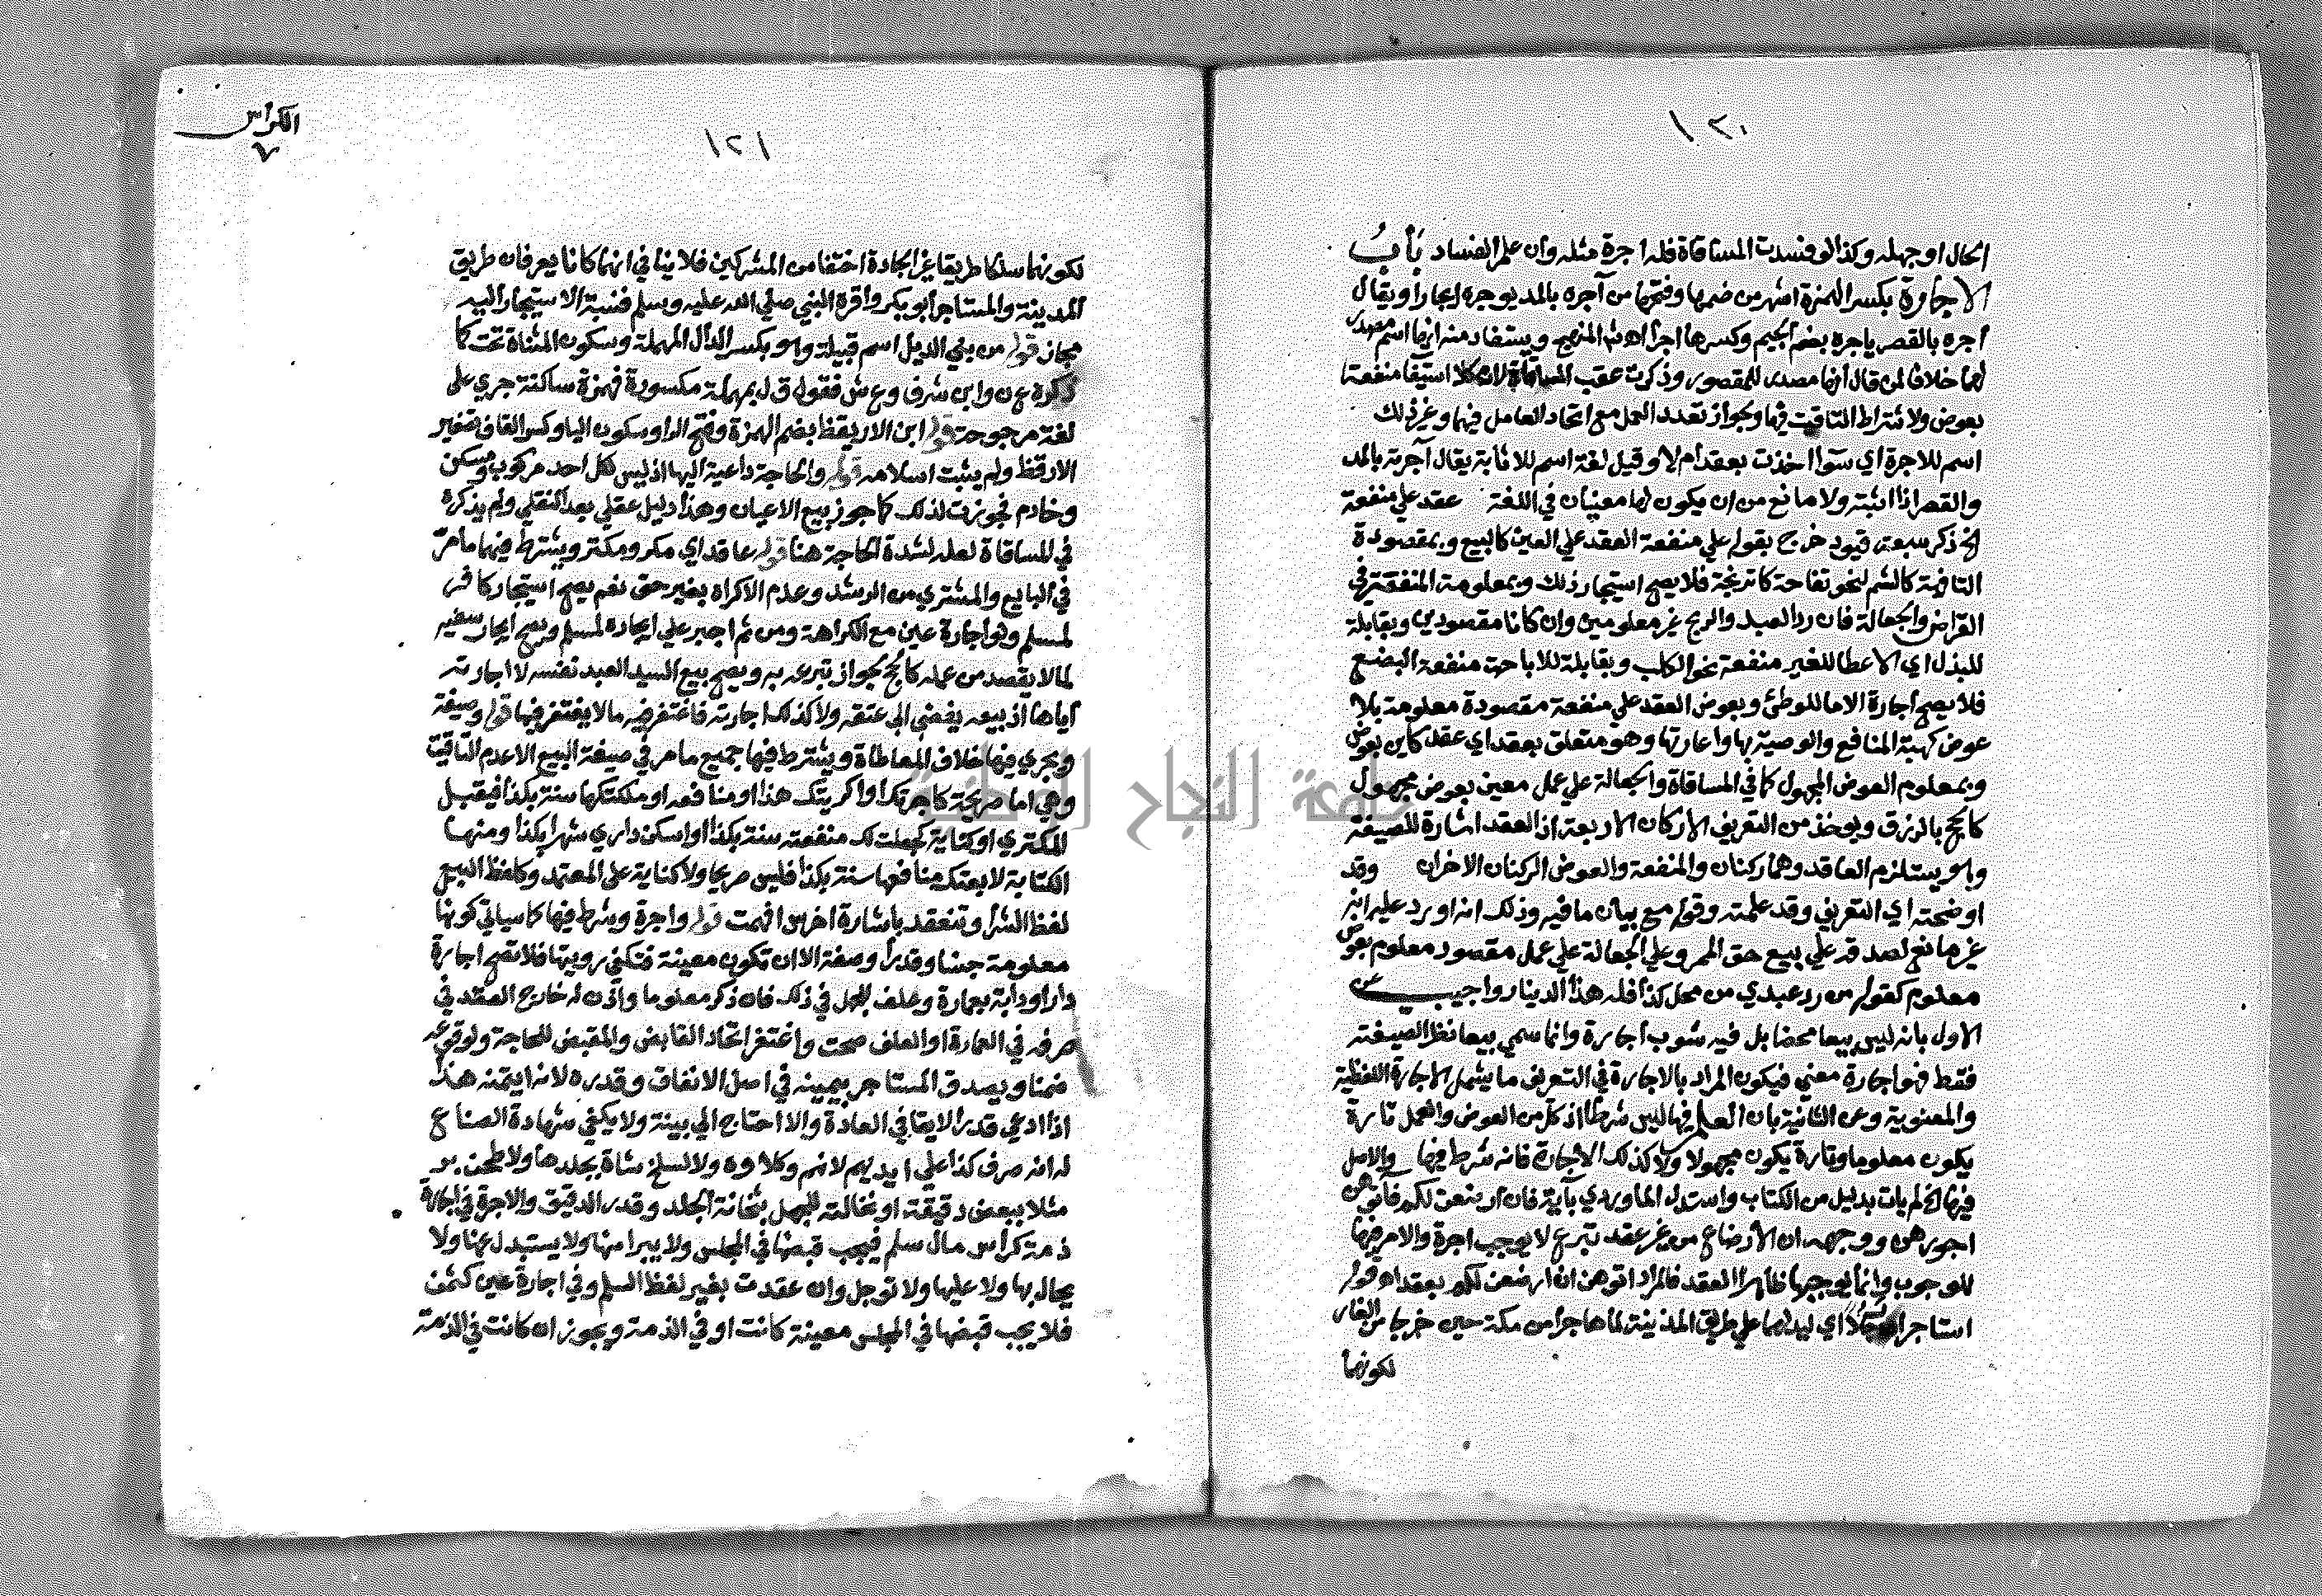 ١٢٠
الحال او جهله وكذا لو فسدت المساقاة فله اجرة مثله وان علم الفساد باب
الاجارة بكسر الهمزة اشهر من ضمها وفتحها من آجره بالمد يوجره ايجارا ويقال
اجره بالقصر ياجره بضم الجيم وكسرها اجرا اهـ المنهج ويستفاد منه انها اسم مصدر
لهما خلافا لمن قال انها مصدر للمقصور وذكرت عقب المساقاة لان كلا استيفا منفعة
بعوض ولاشتراط التاقيت فيها وبجواز تعدد العمل مع اتحاد العامل فيها وغير ذلك
اسم للاجرة اي سوا اخذت بعقد ام لا وقيل لغة اسم للاثابة يقال آجرته بالمد
والقصر اذا اثبته ولا مانع من ان يكون لها معنيان في اللغة عقد علي منفعة
الخ ذكر سبعة قيود خرج بقوله علي منفعة العقد علي العين كالبيع وبمقصودة
التافهة كالشم لنحو تفاحة كاترنجة فلا يصح استيجار ذلك وبمعلومة المنفعة في
القراض والجعالة فان رد العبد والربح غير معلومين وان كانا مقصودين وبقابلة
للبذل اي الاعطا للغير منفعة نحو الكلب وبقابلة للاباحة منفعة البضع
فلا يصح اجارة الاما للوطئ وبعوض العقد علي منفعة مقصودة معلومة بلا
عوض كهبة المنافع والوصية بها واعارتها وهو متعلق بعقد اي عقد كاين بعوض
وبمعلوم العوض المجهول كما في المساقاة والجعالة علي عمل معين بعوض مجهول
كالحج بالرزق ويوخذ من التعريف الاركان الاربعة اذ العقد اشارة للصيغة
وهو يستلزم العاقد وهما ركنان والمنفعة والعوض الركنان الاخران وقد
اوضحته اي التعريف وقد علمته وقوله مع بيان ما فيه وذلك انه اورد عليه انه
غير مانع لصدقه علي بيع حق الممر وعلي الجعالة علي عمل مقصود معلوم بعوض
معلوم كقوله من رد عبدي من محل كذا فله هذا الدينار واجيب عن
الاول بانه ليس بيعا محضا بل فيه شوب اجارة وانما سمي بيعا نظرا لصيغته
فقط فهو اجارة معني فيكون المراد بالاجارة في التعريف ما يشمل الاجارة اللفظية
والمعنوية وعن الثانية بان العلم فيها ليس شرطا اذ كل من العوض والعمل تارة
يكون معلوما وتارة يكون مجهولا ولا كذلك الاجارة فانه شرط فيها والاصل
فيها الخ لم يات بدليل من الكتاب واستدل الماوردي بآية فان ارضعن لكم فآتوهن
اجورهن ووجهه ان الارضاع من غير عقد تبرع لا يوجب اجرة والامر فيها
للوجوب وانما يوجبها ظاهرا العقد فالمراد اتوهن ان ارضعن لكم بعقد اهـ قوله
استاجرا اي ليدلهما علي طريق المدينة لما هاجرا من مكة حين خرجا من الغار
لكونهما
١٢١
الكراس
٧
لكونهما سلكا طريقا غير الجادة اختفا من المشركين فلا ينافي انهما كانا يعرفان طريق
المدينة والمستاجر ابو بكر واقره النبي صلي الله عليه وسلم فنسبة الاستيجار اليه
مجاز قوله من بني الديل اسم قبيلة وهو بكسر الدال المهملة وسكون المثناة تحت كما
ذكره ع ن وابن شرف وع ش فقول ق ل بمهملة مكسورة فهمزة ساكنة جري علي
لغة مرجوحة قوله ابن الاريقط بضم الهمزة وفتح الرا وسكون اليا وكسر القاف تصغير
الارقط ولم يثبت اسلامه قوله والحاجة داعية اليها اذ ليس لكل احد مركوب ومسكن
وخادم فجوزت لذلك كما جوز بيع الاعيان وهذا دليل عقلي بعد النقلي ولم يذكره
في المساقاة لعله لشدة الحاجة هنا قوله عاقد اي مكر ومكتر ويشترط فيهما ما مر
في البايع والمشتري من الرشد وعدم الاكراه بغير حق نعم يصح استيجار كافر
لمسلم ولو اجارة عين مع الكراهة ومن ثم اجبر علي ايجاره لمسلم ويصح ايجار سفيه
لما لا يقصد من عمله كالحج لجواز تبرعه به ويصح بيع السيد العبد نفسه لا اجارته
اياها اذ بيعه يفضي الي عتقه ولا كذلك اجارته فاغتفر فيه ما لا يغتفر فيها قوله وصيغة
ويجري فيها خلاف المعاطاة ويشترط فيها جميع ما مر في صيغة البيع الا عدم التاقيت
وهي اما صريحة كاجرتك او اكريتك هذا او منافعه او ملكتكها سنة بكذا فيقبل
المكتري او كناية كجعلت لك منفعته سنة بكذا او اسكن داري شهرا بكذا ومنها
الكتابة لا بعتك منافعها سنة بكذا فليس صريحا ولا كناية علي المعتمد وكلفظ البيع
لفظ الشرا وتنعقد باشارة اخرس افهمت قوله واجرة وشرط فيها كما سياتي كونها
معلومة جنسا وقدرا وصفة الا ان تكون معينة فتكفي رويتها فلا تصح اجارة
دار او دابة بعمارة وعلف للجهل في ذلك فان ذكر معلوما واذن له خارج العقد في
صرفه في العمارة او العلف صحت واغتفر اتحاد القابض والمقبض للحاجة ولوقوعه
ضمنا ويصدق المستاجر بيمينه في اصل الانفاق وقدره لانه ايتمنه هذا
اذا ادعي قدرا لايقا في العادة والا احتاج الي بينة ولا يكفي شهادة الصناع
له انه صرف كذا علي ايديهم لانهم وكلاوه ولا لسلخ شاة بجلدها ولا طحن بر
مثلا ببعض دقيقه او نخالته للجهل بثخانة الجلد وقدر الدقيق والاجرة في اجارة
ذمة كراس مال سلم فيجب قبضها في المجلس ولا يبرا منها ولا يستبدل عنها ولا
يحال بها ولا عليها ولا توجل وان عقدت بغير لفظ السلم وفي اجارة عين كثمن
فلا يجب قبضها في المجلس معينة كانت او في الذمة ويجوز ان كانت في الذمة
جامعة النجاح الوطنية